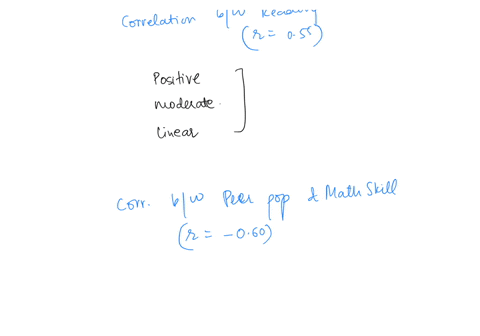 Correlation b/w Reading
(r = 0.55)
Positive
moderate
Linear
Corr. b/w Peer pop & Math Skill
(r = -0.60)